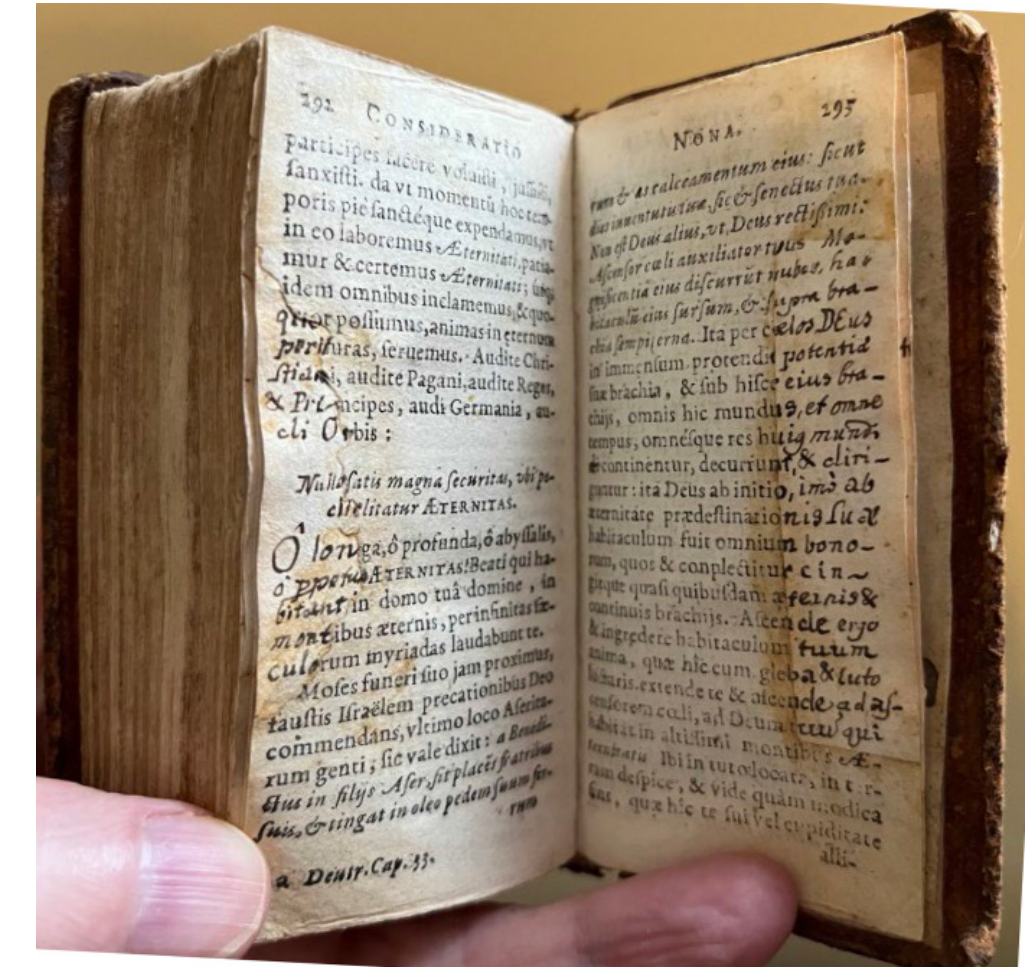 292 CONSIDERATIO
participes facere voluisti, jussisti,
sanxisti. da vt momentū hoc tem-
poris pie sanctéque expendamus, vt
in eo laboremus Æternitati, patia-
mur & certemus Æternitati;
idem omnibus inclamemus, & quo-
quot possumus, animas in ęternum
perituras, seruemus. Audite Chri-
stiani, audite Pagani, audite Reges,
& Principes, audi Germania, au-
di Orbis:
Nulla satis magna securitas, vbi pe-
riclitatur ÆTERNITAS.
Ô longa, ô profunda, ô abyssalis,
ô ÆTERNITAS! Beati qui ha-
bitant in domo tuâ domine, in
montibus æternis, per infinitas sæ-
culorum myriadas laudabunt te.
Moses funeri suo jam proximus,
faustis Israëlem precationibus Deo
commendans, vltimo loco Aserita-
rum genti, sic vale dixit: a Benedi-
ctus in filijs Aser, sit placēs fratribus
suis, & tingat in oleo pedem suum fer-
rum
a Deutr. Cap. 33.
NONA. 293
rum & æs calceamentum eius: sicut
dies iuuentutis tuæ, sic & senectus tua.
Non est Deus alius, vt Deus rectissimi:
Ascensor cæli auxiliator tuus Ma-
gnificentia eius discurrūt nubes, ha-
bitaculū eius sursum, & supra bra-
chia sempiterna. Ita per cælos DEus
in immensum protendit potentiæ
suæ brachia, & sub hisce eius bra-
chijs, omnis hic mundus, et omne
tempus, omnésque res huig mundi
continentur, decurrunt, & diri-
guntur: ita Deus ab initio, imò ab
æternitate prædestinationis suæ
habitaculum fuit omnium bono-
rum, quos & conplectitur cin-
gitque quasi quibusdam æternis &
continuis brachijs. Ascende ergo
& ingredere habitaculum tuum
anima, quæ hîc cum gleba & luto
luctaris. extende te & ascende ad as-
censorem cœli, ad Deum tuū qui
habitat in altissimi montibus Æ-
ternitatis Ibi in tuto locata, in ter-
ram despice, & vide quàm modica
sint, quæ hîc te sui vel cupiditate
alli-